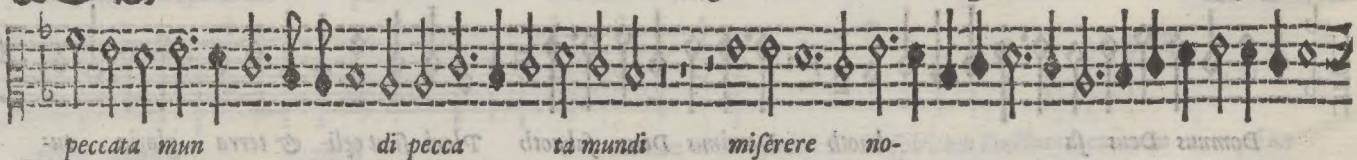 peccata mun di pecca ta mundi miserere no-